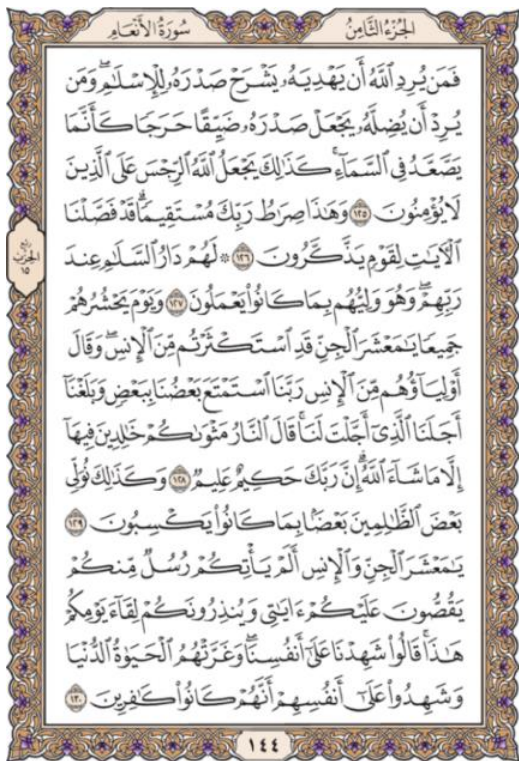 الجزء الثامن
سورة الأنعام
فَمَن يُرِدِ ٱللَّهُ أَن يَهْدِيَهُۥ يَشْرَحْ صَدْرَهُۥ لِلْإِسْلَٰمِۖ وَمَن
يُرِدْ أَن يُضِلَّهُۥ يَجْعَلْ صَدْرَهُۥ ضَيِّقًا حَرَجًا كَأَنَّمَا
يَصَّعَّدُ فِي ٱلسَّمَآءِۚ كَذَٰلِكَ يَجْعَلُ ٱللَّهُ ٱلرِّجْسَ عَلَى ٱلَّذِينَ
لَا يُؤْمِنُونَ ١٢٥ وَهَٰذَا صِرَٰطُ رَبِّكَ مُسْتَقِيمًاۗ قَدْ فَصَّلْنَا
ٱلْءَايَٰتِ لِقَوْمٍ يَذَّكَّرُونَ ١٢٦ ۞ لَهُمْ دَارُ ٱلسَّلَٰمِ عِندَ
رَبِّهِمْۖ وَهُوَ وَلِيُّهُم بِمَا كَانُوا۟ يَعْمَلُونَ ١٢٧ وَيَوْمَ يَحْشُرُهُمْ
جَمِيعًا يَٰمَعْشَرَ ٱلْجِنِّ قَدِ ٱسْتَكْثَرْتُم مِّنَ ٱلْإِنسِۖ وَقَالَ
أَوْلِيَآؤُهُم مِّنَ ٱلْإِنسِ رَبَّنَا ٱسْتَمْتَعَ بَعْضُنَا بِبَعْضٍ وَبَلَغْنَآ
أَجَلَنَا ٱلَّذِىٓ أَجَّلْتَ لَنَاۚ قَالَ ٱلنَّارُ مَثْوَىٰكُمْ خَٰلِدِينَ فِيهَآ
إِلَّا مَا شَآءَ ٱللَّهُۗ إِنَّ رَبَّكَ حَكِيمٌ عَلِيمٌ ١٢٨ وَكَذَٰلِكَ نُوَلِّى
بَعْضَ ٱلظَّٰلِمِينَ بَعْضًۢا بِمَا كَانُوا۟ يَكْسِبُونَ ١٢٩
يَٰمَعْشَرَ ٱلْجِنِّ وَٱلْإِنسِ أَلَمْ يَأْتِكُمْ رُسُلٌ مِّنكُمْ
يَقُصُّونَ عَلَيْكُمْ ءَايَٰتِى وَيُنذِرُونَكُمْ لِقَآءَ يَوْمِكُمْ
هَٰذَاۚ قَالُوا۟ شَهِدْنَا عَلَىٰٓ أَنفُسِنَاۖ وَغَرَّتْهُمُ ٱلْحَيَوٰةُ ٱلدُّنْيَا
وَشَهِدُوا۟ عَلَىٰٓ أَنفُسِهِمْ أَنَّهُمْ كَانُوا۟ كَٰفِرِينَ ١٣٠
ربع
الحزب
١٥
١٤٤